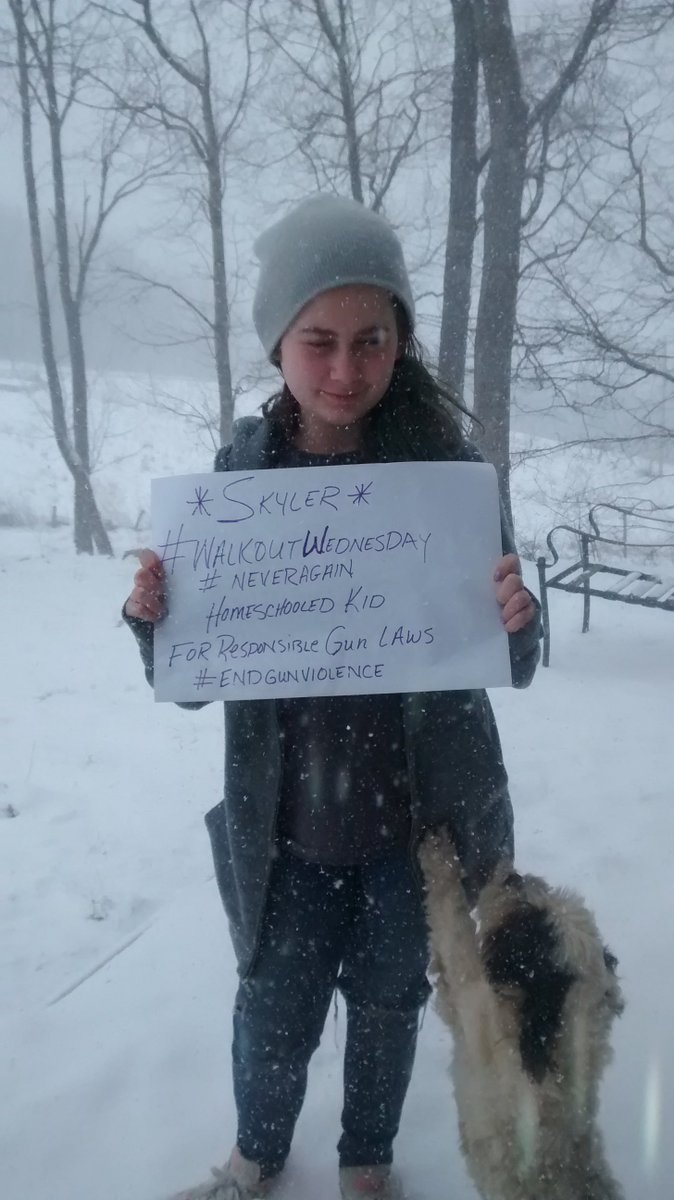 *SKYLER*
#WALKOUTWEDNESDAY
# NEVERAGAIN
HOMESCHOOLED KID
FOR RESPONSIBLE GUN LAWS
#ENDGUNVIOLENCE